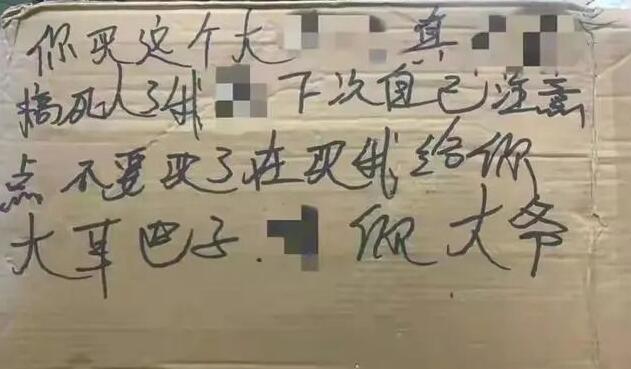 你买这个大 真
搞死人了我 下次自己注意
点 不要买了在买我给你
大草巴子. 你大爷